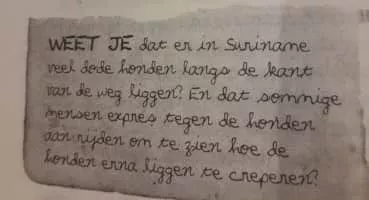 WEET JE dat er in Suriname
veel dode honden langs de kant
van de weg liggen? En dat sommige
mensen expres tegen de honden
aan rijden om te zien hoe de
honden erna liggen te creperen?